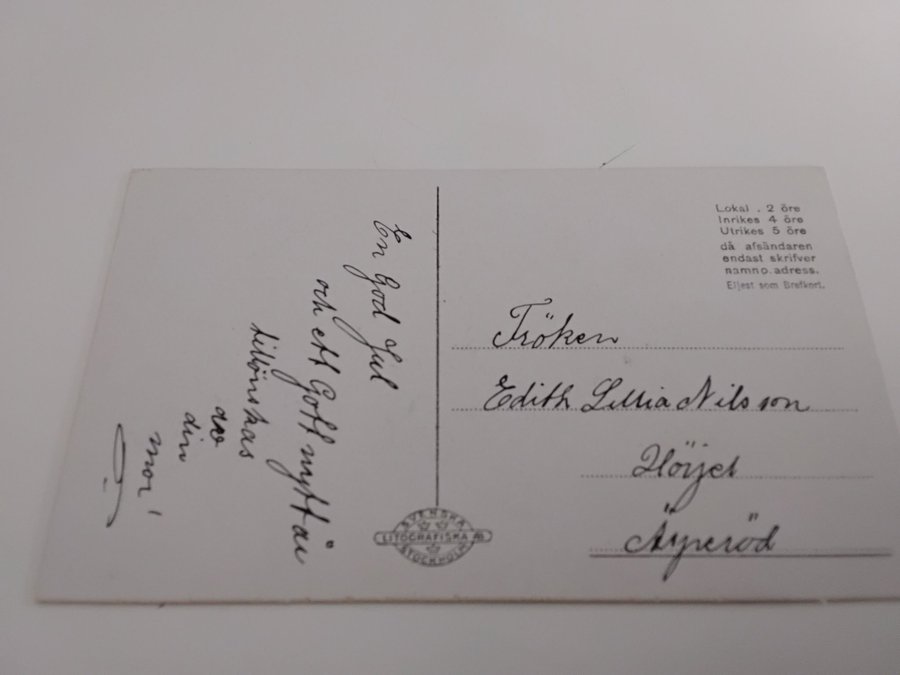 En God Jul
och ett Gott nytt år
tillönskas
av
din
mor!
Lokal . 2 öre
Inrikes 4 öre
Utrikes 5 öre
då afsändaren
endast skrifver
namn o. adress.
Eljest som Brefkort.
Fröken
Edith Lillia Nilsson
Höijet
Äsperöd
SVENSKA
LITOGRAFISKA AB.
STOCKHOLM